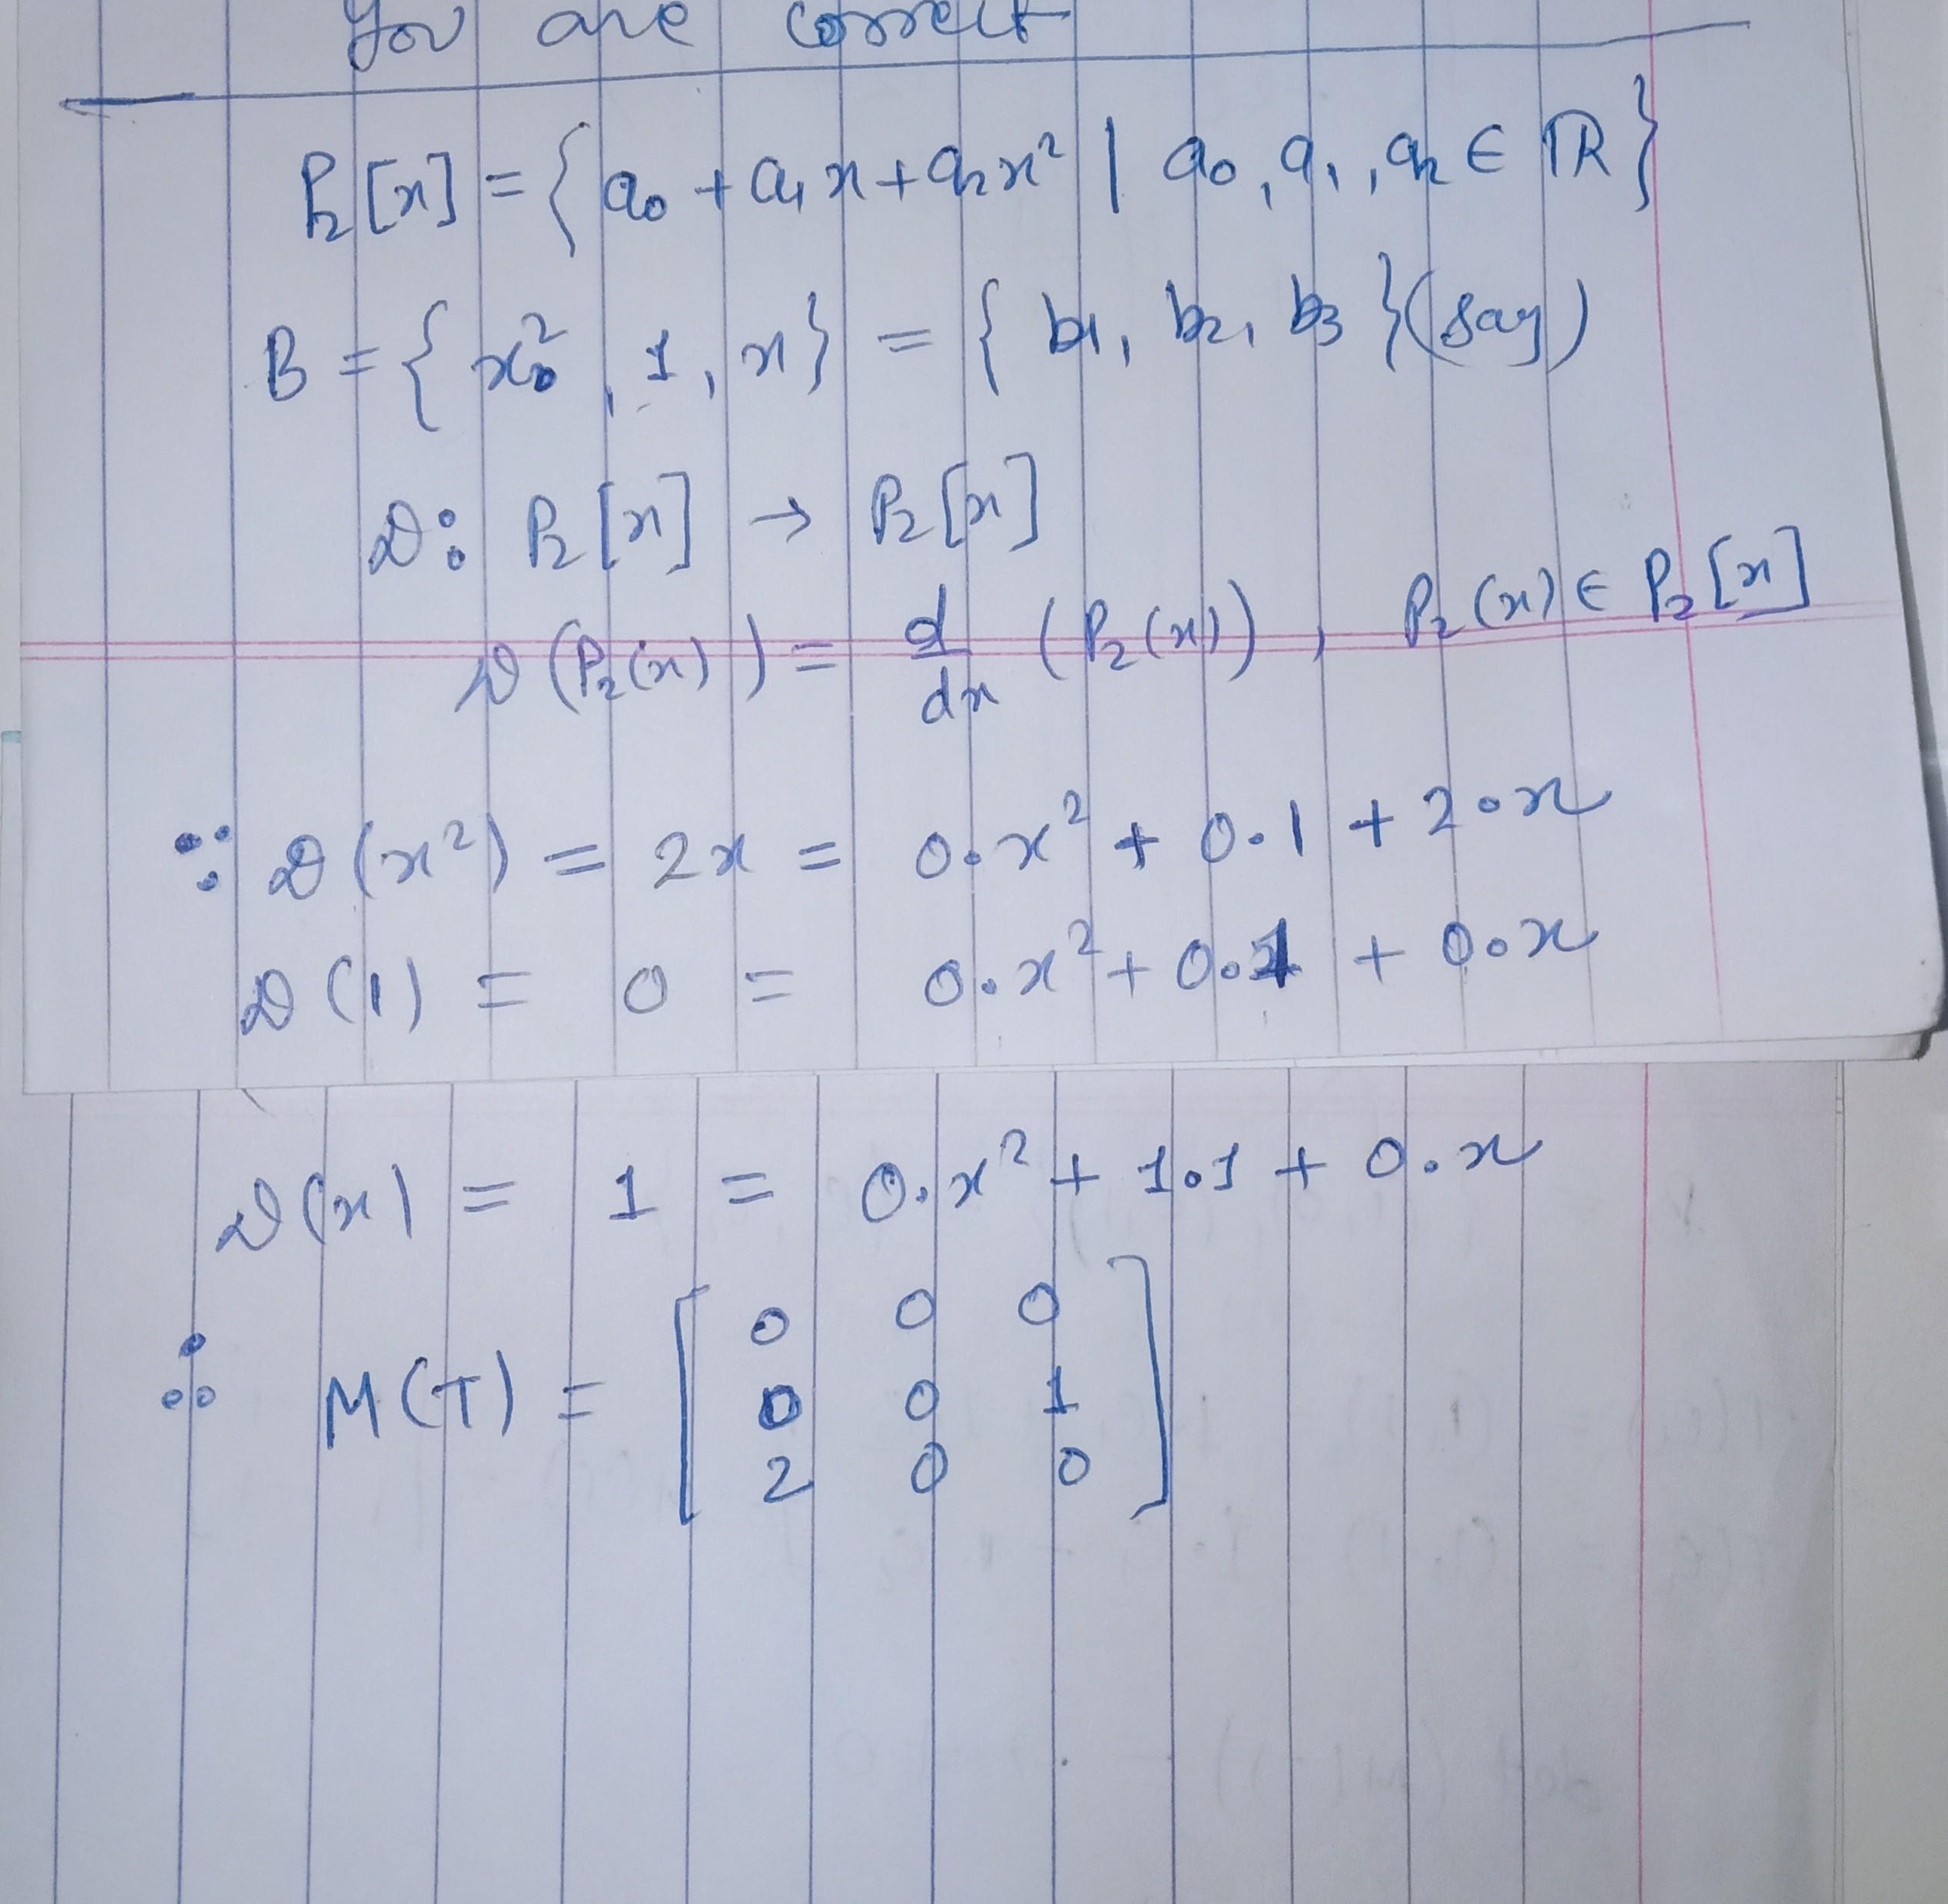 You are correct
P₂[x] = { a₀ + a₁x + a₂x² | a₀, a₁, a₂ ∈ ℝ }
B = { x², 1, x } = { b₁, b₂, b₃ } (say)
D: P₂[x] → P₂[x]
D(P₂(x)) = d/dx (P₂(x)), P₂(x) ∈ P₂[x]
∵ D(x²) = 2x = 0·x² + 0·1 + 2·x
D(1) = 0 = 0·x² + 0·1 + 0·x
D(x) = 1 = 0·x² + 1·1 + 0·x
∴ M(T) = [
0 0 0
0 0 1
2 0 0
]